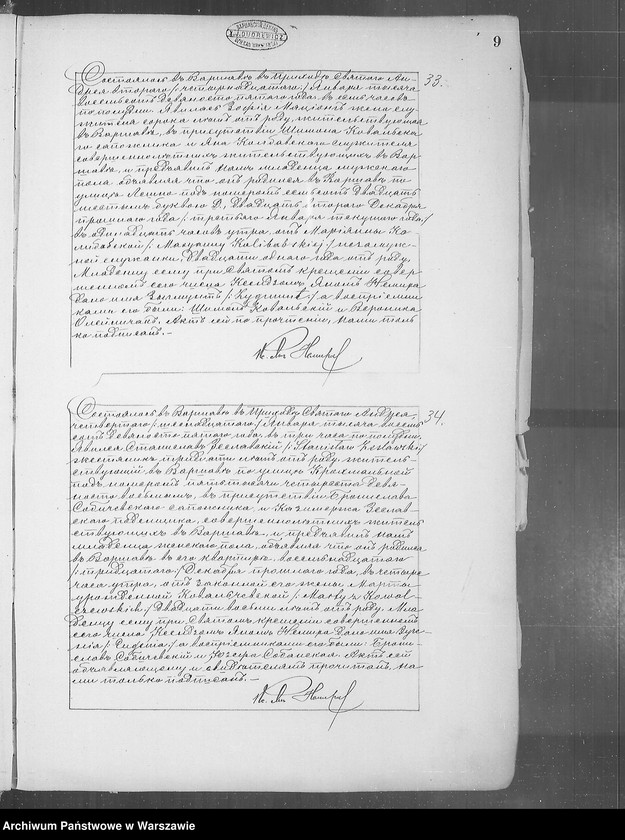 9
33.
Состоялось въ Варшавѣ въ Приходѣ Святаго Ан-
дрея второго /:четырнадцатаго:/ Января тысяча
восемьсотъ девяносто пятаго года, въ семь часовъ
по полудни. Явилась Зофія жена слу-
жителя сорока лѣтъ отъ роду, жительствующая
въ Варшавѣ, въ присутствіи Шимона Ковальска-
го сапожника и Яна служителя
совершеннолѣтнихъ жительствующихъ въ Вар-
шавѣ, и предъявила намъ младенца мужскаго
пола объявляя что онъ родился въ Варшавѣ по
улицѣ Лешно подъ номеромъ семьсотъ двадцать
шестымъ буквою Д, двадцать втораго Декабря
прошлаго года /:третьяго Января текущаго года:/
въ одинадцать часовъ утра, отъ Маріанны Ко-
либабской /:Maryanny Kolibabskiej:/ незамуж-
ной служанки, двадцати одного года отъ роду.
Младенцу сему при Святомъ крещеніи совер-
шенномъ сего числа Ксендзомъ Яномъ Немира
дано имя Зыгмунтъ /:Zygmunt:/ а воспріемни-
ками его были: Шимонъ Ковальскій и Вероника
Олейничакъ. Актъ сей по прочтеніи, нами толь-
ко подписанъ. –
34.
Состоялось въ Варшавѣ въ Приходѣ Святаго Андрея,
четвертаго /:шестнадцатаго:/ Января тысяча восемь-
сотъ девяносто пятаго года, въ три часа по полудни.
Явился Станиславъ Зеславскій /:Stanisław Zesławski:/
жестяникъ тридцати лѣтъ отъ роду, житель-
ствующій въ Варшавѣ по улицѣ Крохмальной
подъ номеромъ четыреста девя-
носто восьмымъ, въ присутствіи Бронислава
Собичевскаго сапожника и Казимержа Зеслав-
скаго поденщика, совершеннолѣтнихъ житель-
ствующихъ въ Варшавѣ, и предъявилъ намъ
младенца женскаго пола, объявляя что онъ родился
въ Варшавѣ въ его квартирѣ, восемнадцатаго
/:тридцатаго:/ Декабря прошлаго года, въ четыре
часа утра, отъ законной его жены Марты
урожденной Ковальчевской /:Marty z Kowal-
czewskich:/ двадцати восьми лѣтъ отъ роду. Мла-
денцу сему при Святомъ крещеніи совершенномъ
сего числа Ксендзомъ Яномъ Немира дано имя
а воспріемниками его были: Брони-
славъ Собичевскій и Юзефа Актъ сей
объявляющему и свидѣтелямъ прочитанъ, на-
ми только подписанъ. –
Archiwum Państwowe w Warszawie